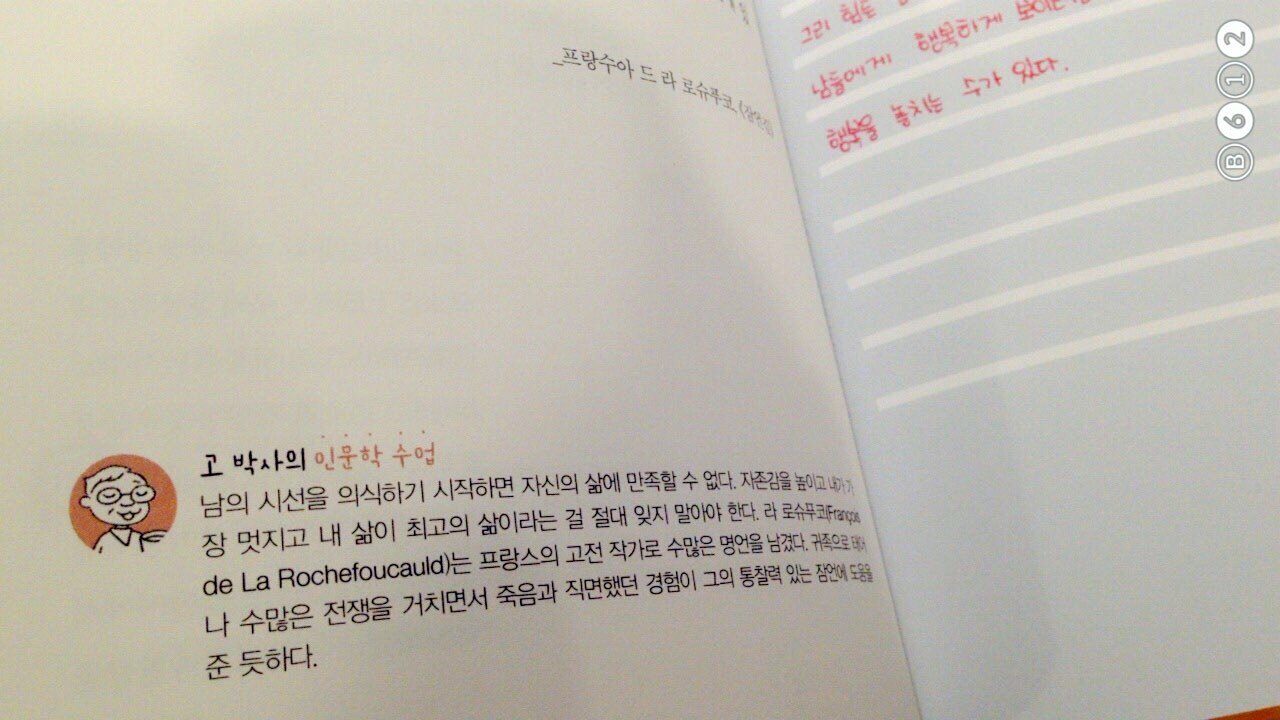 _프랑수아 드 라 로슈푸코, 《잠언집》
고 박사의 인문학 수업
남의 시선을 의식하기 시작하면 자신의 삶에 만족할 수 없다. 자존감을 높이고 내가 가
장 멋지고 내 삶이 최고의 삶이라는 걸 절대 잊지 말아야 한다. 라 로슈푸코(François
de La Rochefoucauld)는 프랑스의 고전 작가로 수많은 명언을 남겼다. 귀족으로 태어
나 수많은 전쟁을 거치면서 죽음과 직면했던 경험이 그의 통찰력 있는 잠언에 도움을
준 듯하다.
그리 힘든
남들에게 행복하게 보이는
행복을 놓치는 수가 있다.
B612